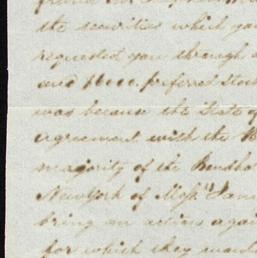 the securities which you
requested you through
and $6000. preferred Stock
was because the State of
agreement with the
majority of the Bondhol
New York of Messrs
bring an action agai
for which they